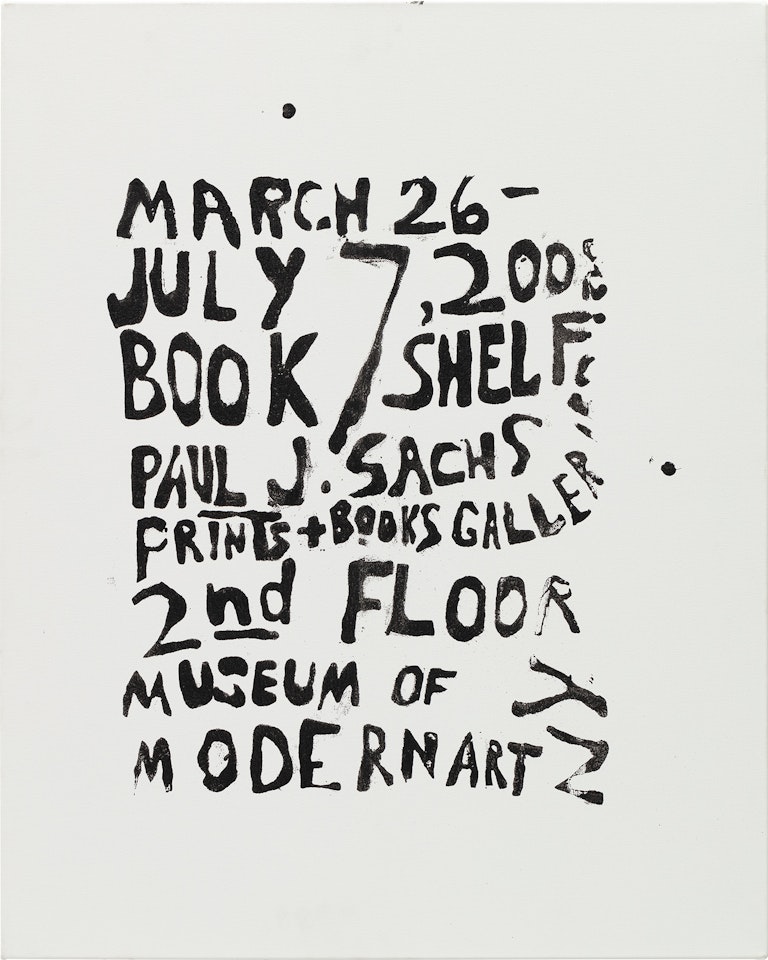 MARCH 26-
JULY 7, 2008
BOOK SHELF
PAUL J. SACHS
PRINTS+BOOKS GALLERIES
2nd FLOOR
MUSEUM OF
MODERN ART
NY